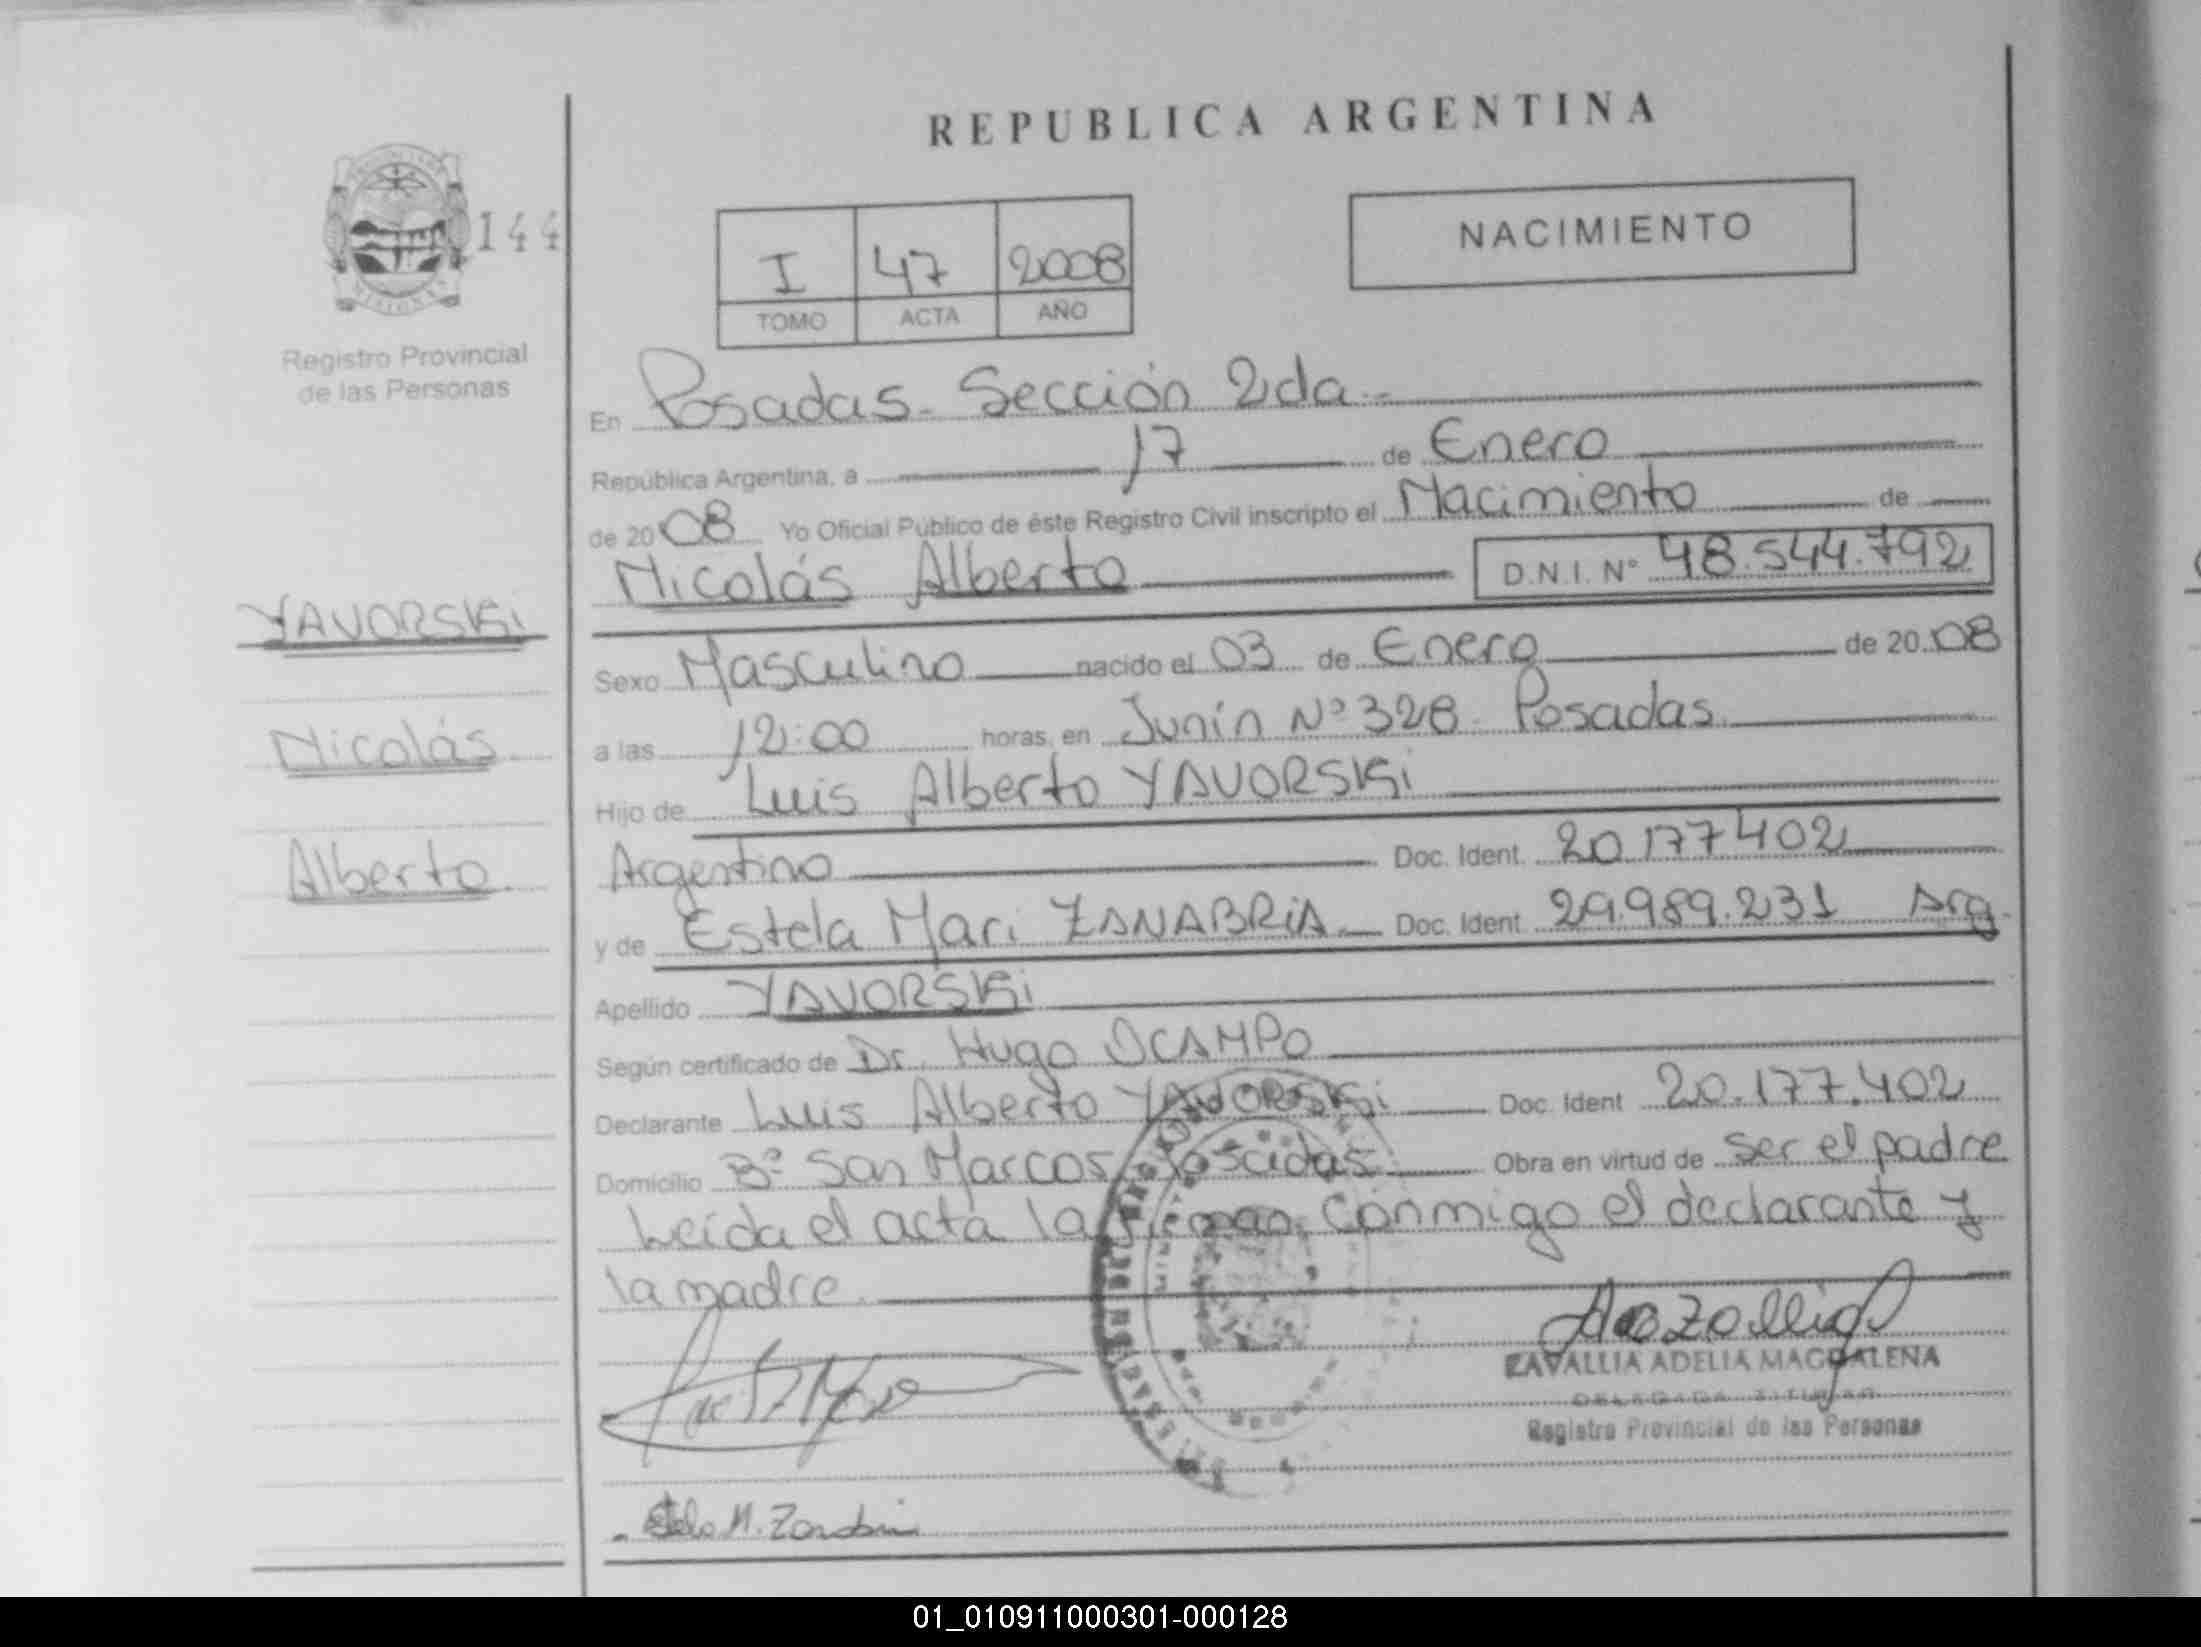 REPUBLICA ARGENTINA
144
MISIONES
Registro Provincial
de las Personas
I 47 2008
TOMO ACTA AÑO
NACIMIENTO
En Posadas. Sección 2da.-
República Argentina, a 17 de Enero
de 2008 Yo Oficial Público de éste Registro Civil inscripto el Nacimiento de
Nicolás Alberto D.N.I. Nº 48.544.792
YAVORSKi
Nicolás
Alberto
Sexo Masculino nacido el 03 de Enero de 2008
a las 12:00 horas, en Junín Nº 328. Posadas.
Hijo de Luis Alberto YAVORSKi
Argentino Doc. Ident. 20.177.402
y de Estela Mari ZANABRIA Doc. Ident. 29.989.231 Arg.
Apellido YAVORSKi
Según certificado de Dr. Hugo OCAMPO
Declarante Luis Alberto YAVORSKi Doc. Ident 20.177.402
Domicilio Bº San Marcos. Posadas. Obra en virtud de ser el padre
Leída el acta la firman, conmigo el declarante y
la madre.
ZAVALLIA ADELIA MAGDALENA
DELEGADA TITULAR
Registro Provincial de las Personas
01_010911000301-000128